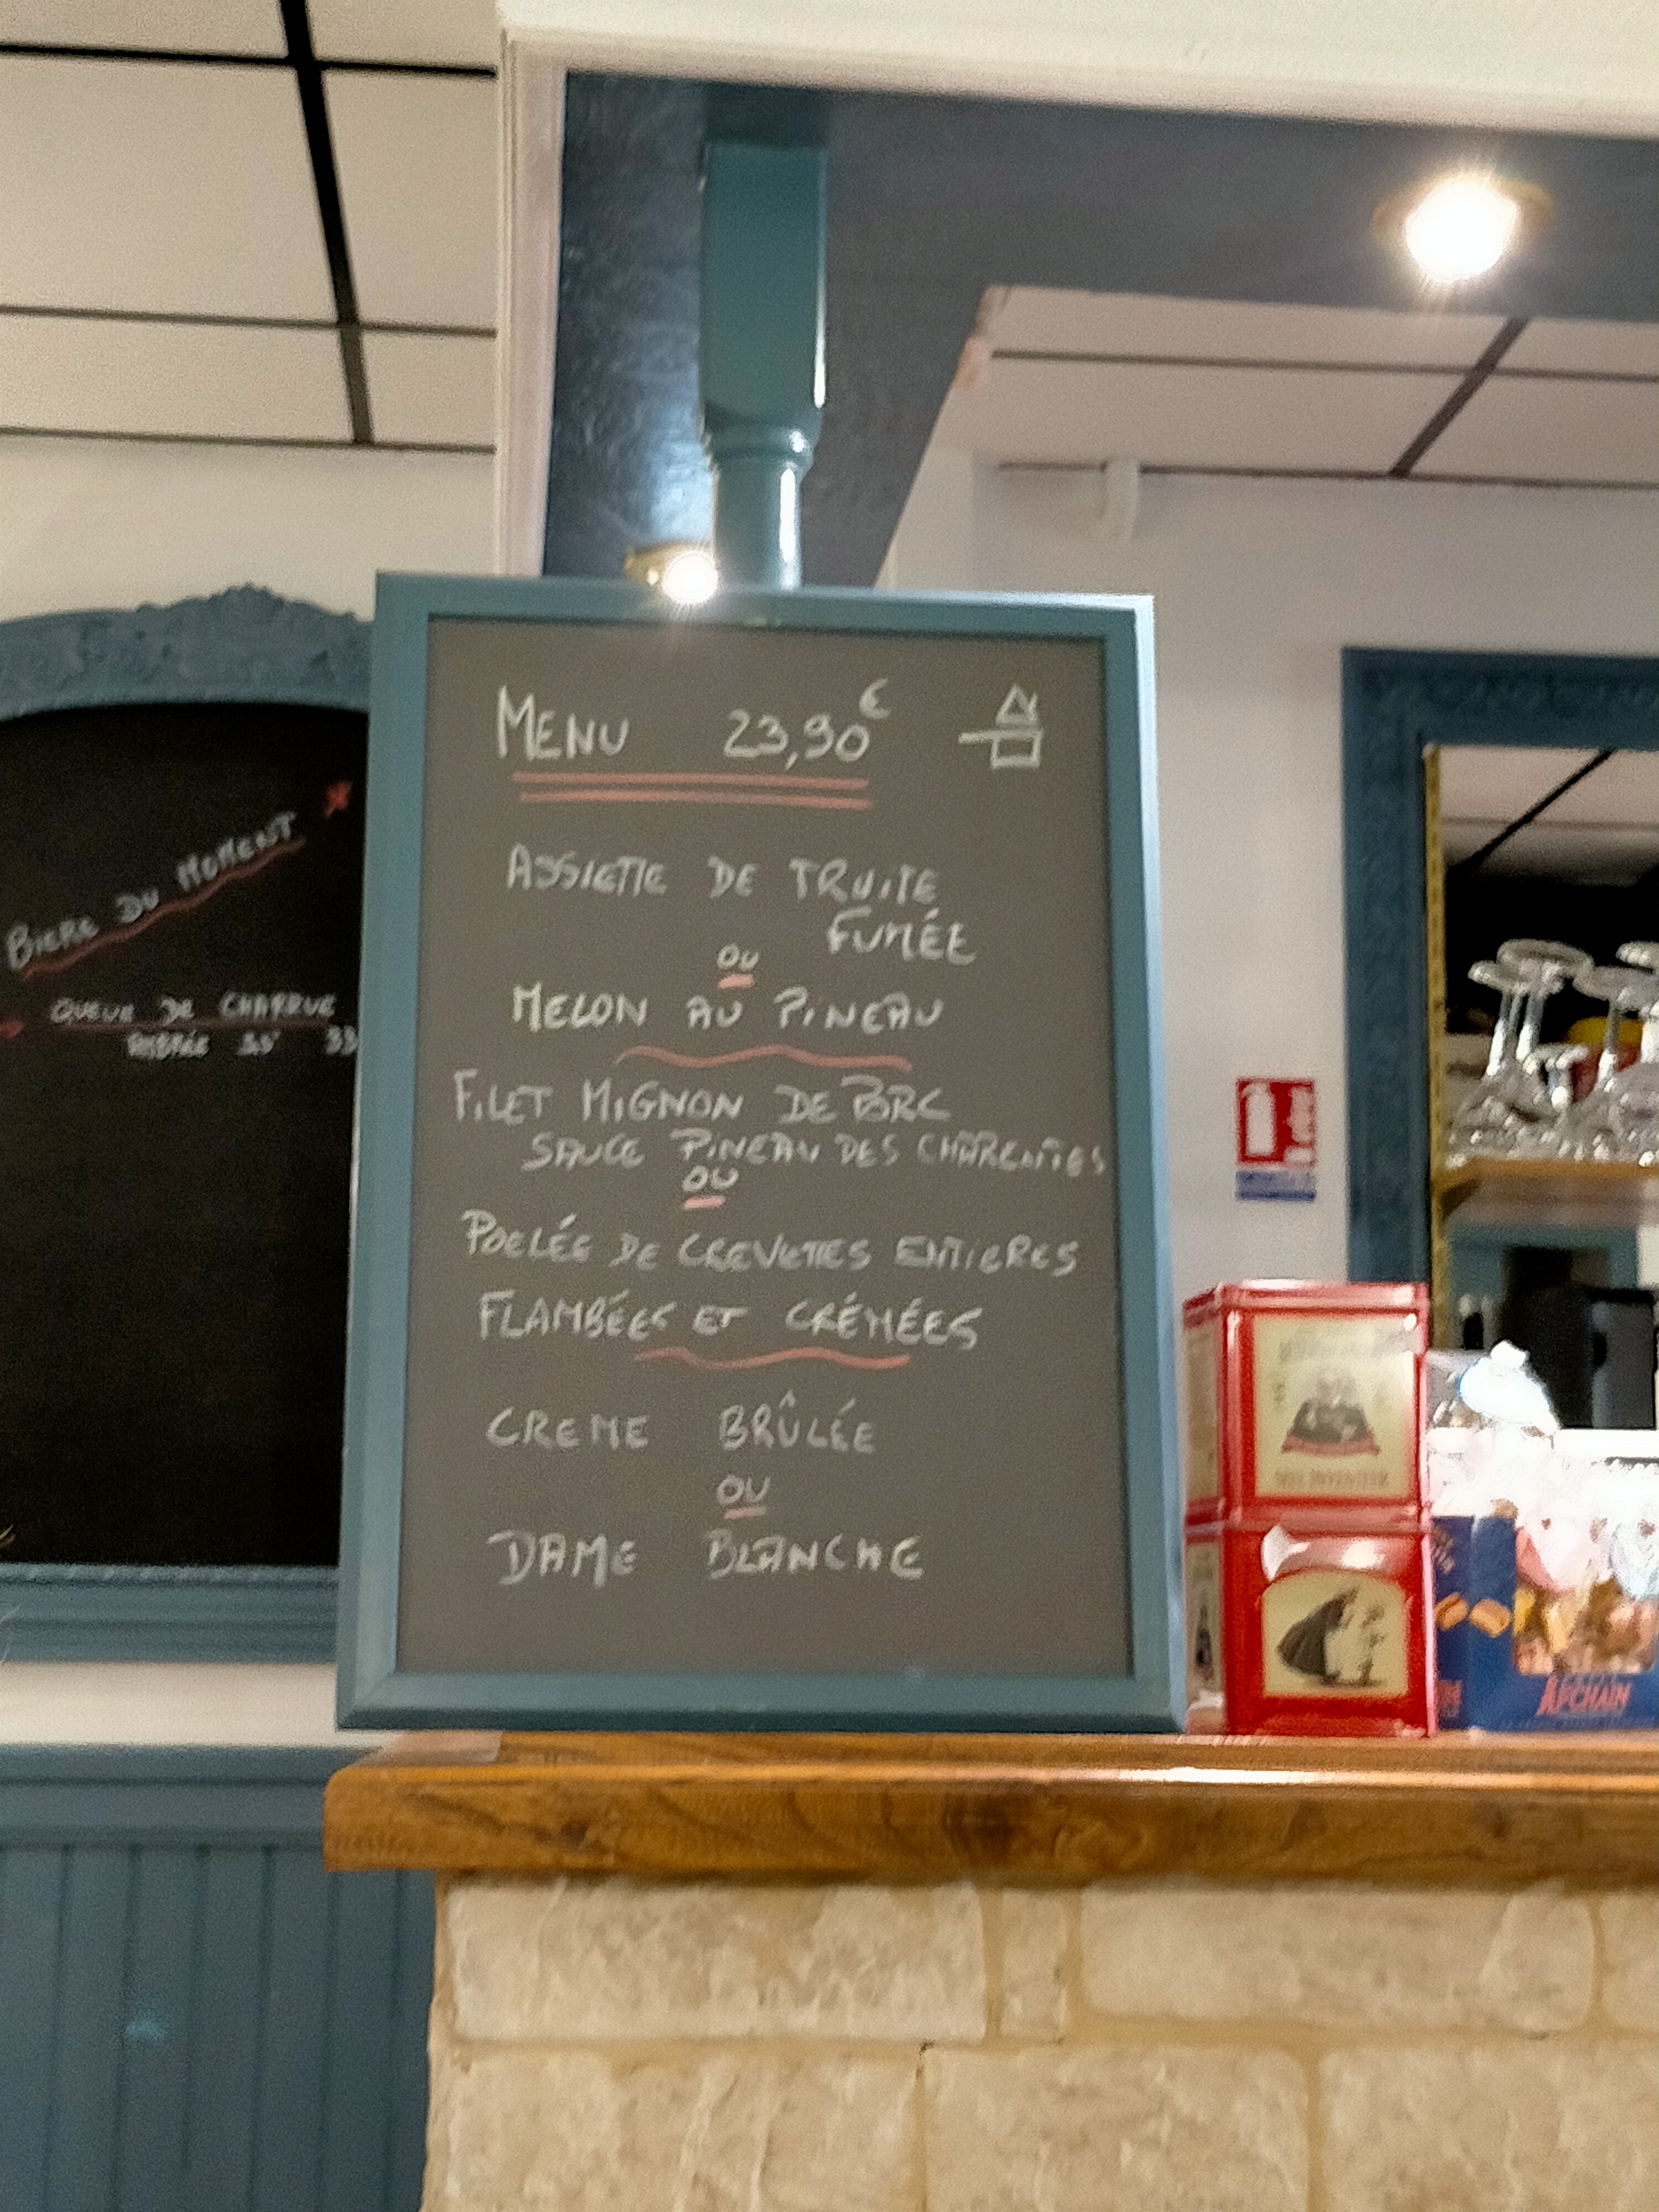 MENU 23,90€
ASSIETTE DE TRUITE
FUMÉE
OU
MELON AU PINEAU
FILET MIGNON DE PORC
SAUCE PINEAU DES CHARENTES
OU
POELÉE DE CREVETTES ENTIERES
FLAMBÉES ET CRÉMÉES
CREME BRÛLÉE
OU
DAME BLANCHE
BIERE DU MOMENT
QUEUE DE CHARRUE
AMBRÉE 25 33
AFCHAIN